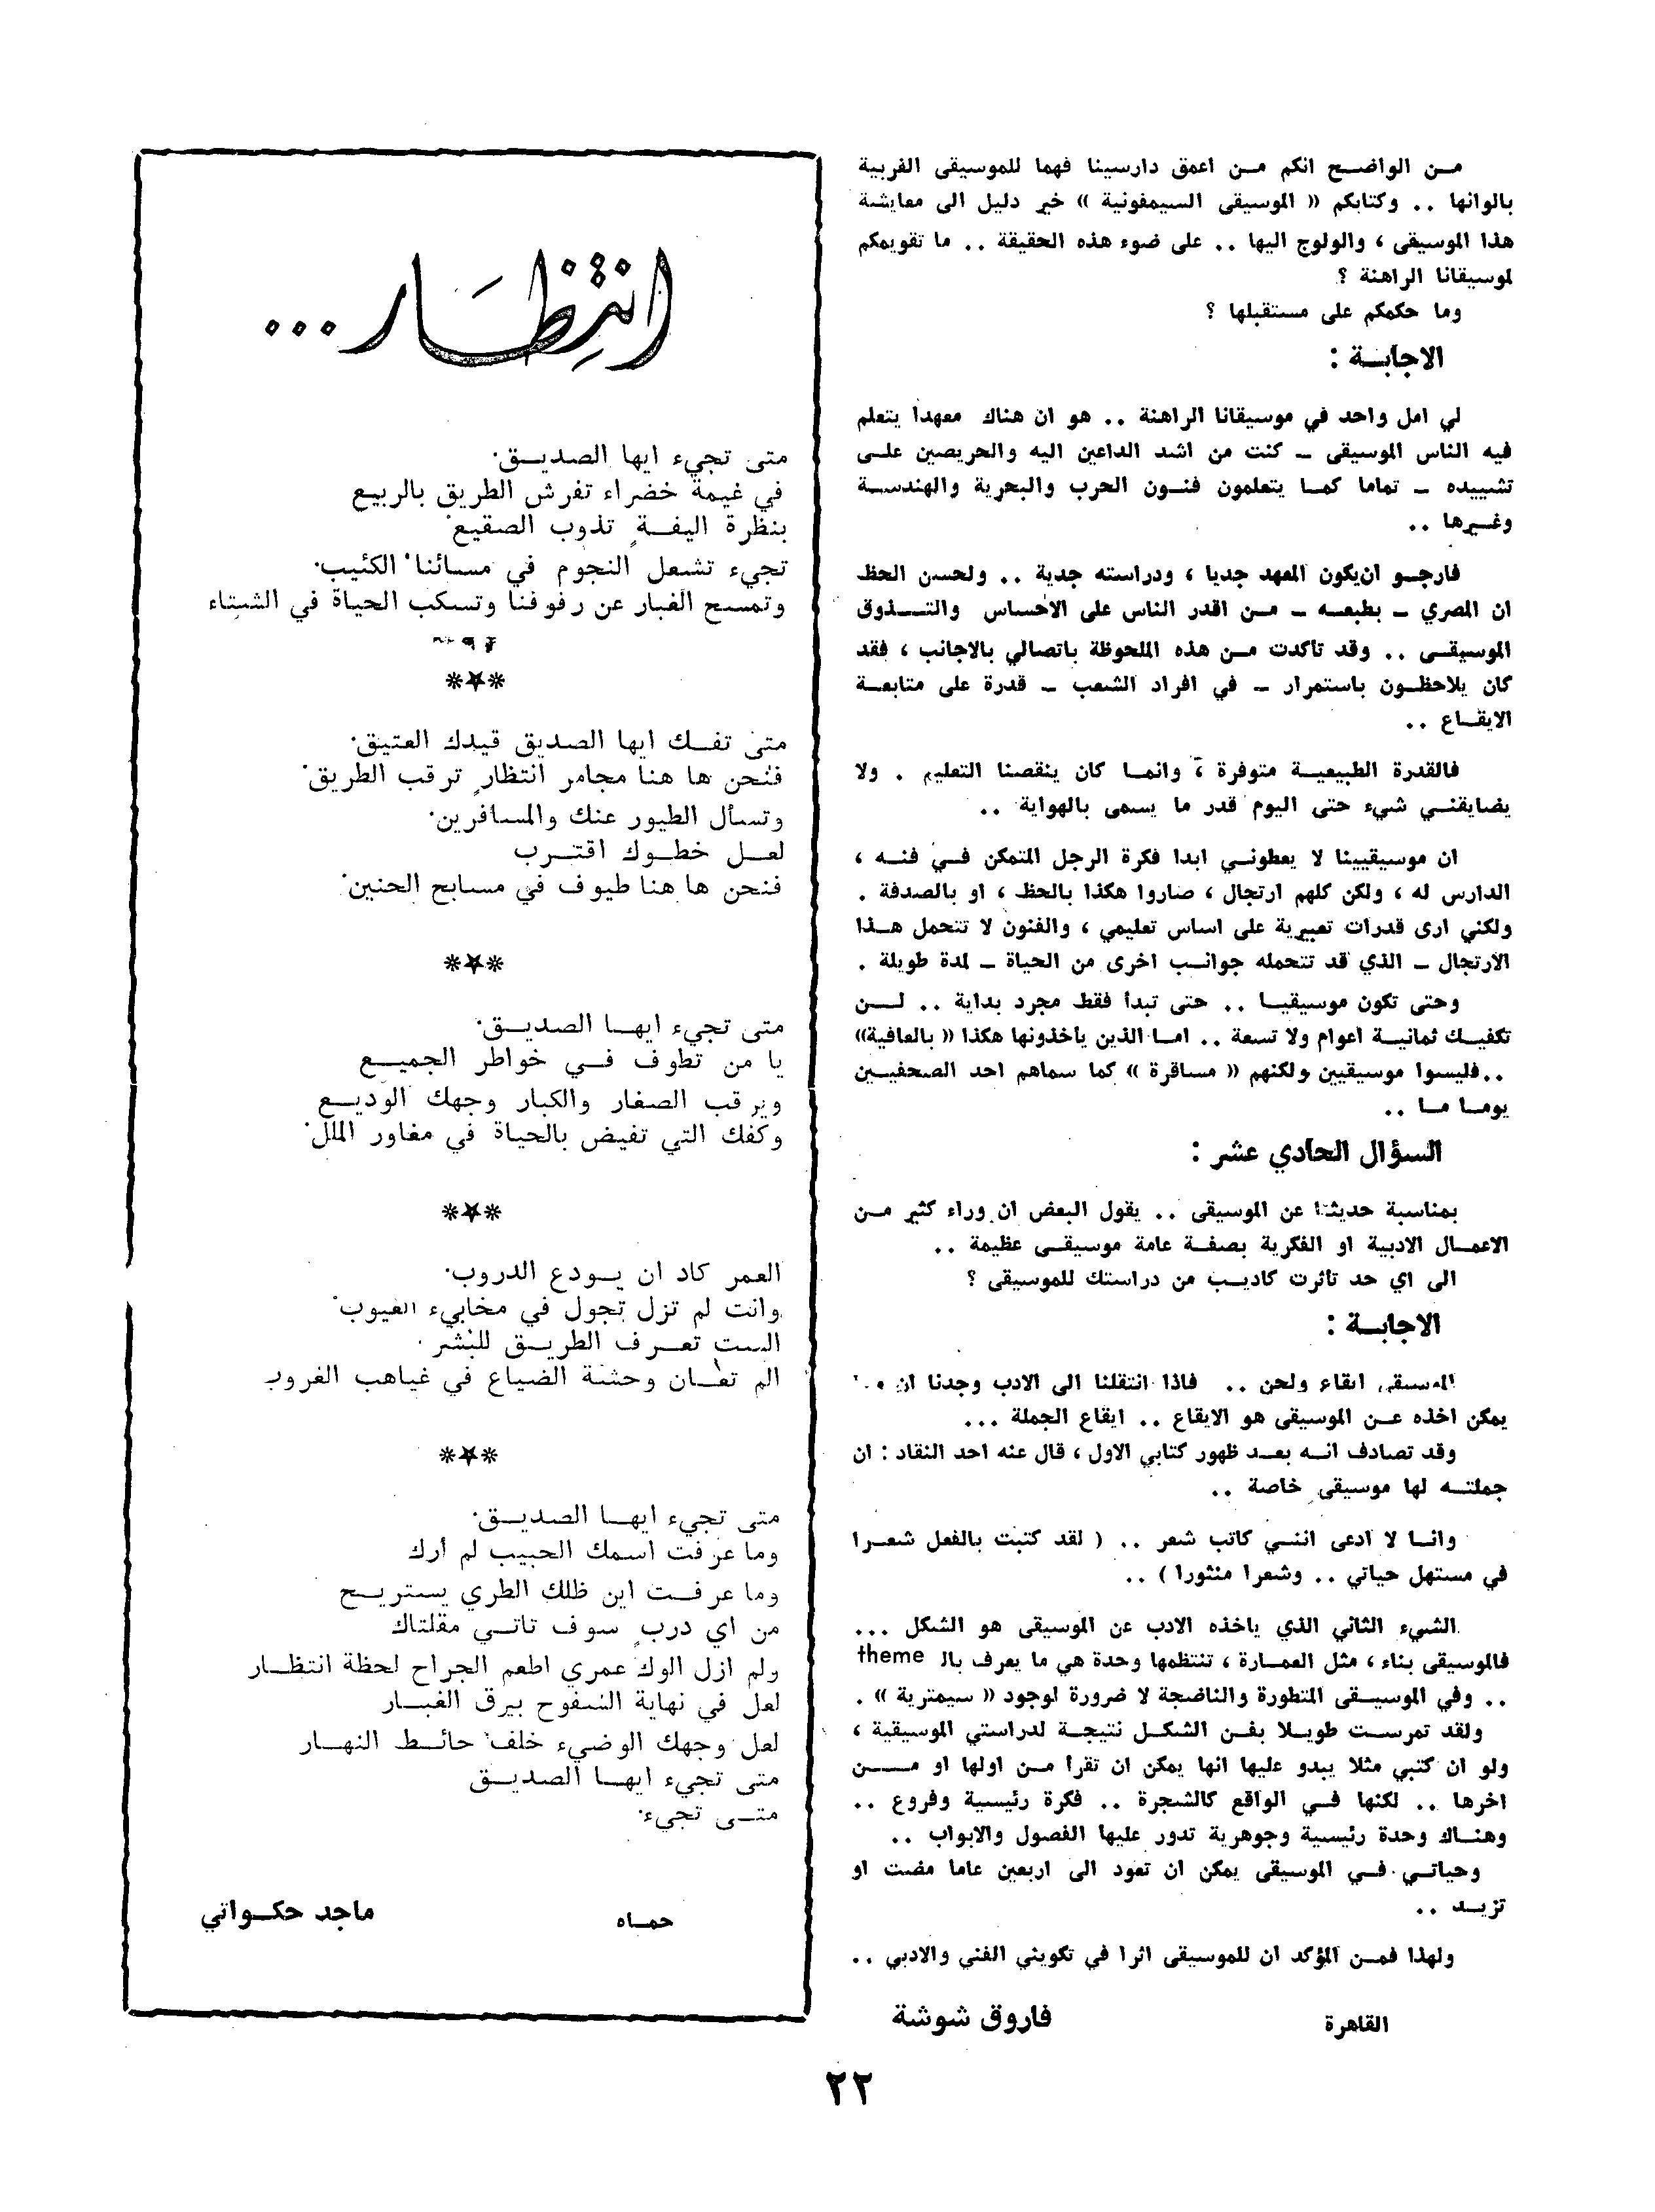 مـن الواضـح انكم مـن اعمق دارسينا فهما للموسيقى الغربية
بالوانها .. وكتابكم « الموسيقى السيمفونية » خير دليل الى معايشة
هذا الموسيقى ، والولوج اليها .. على ضوء هذه الحقيقة .. ما تقويمكم
لموسيقانا الراهنة ؟
وما حكمكم على مستقبلها ؟
الاجابـة :
لي امل واحد في موسيقانا الراهنة .. هو ان هناك معهدا يتعلم
فيه الناس الموسيقى ـ كنت من اشد الداعين اليه والحريصين علـى
تشييده ـ تماما كمـا يتعلمون فنـون الحرب والبحرية والهندسـة
وغـيرها ..
فارجـو ان يكون المعهد جديا ، ودراسته جدية .. ولحسن الحظ
ان المصري ـ بطبعـه ـ مـن اقدر الناس على الاحساس والتــذوق
الموسيقـى .. وقد تأكدت مـن هذه الملحوظة باتصالي بالاجانب ، فقد
كان يلاحظـون باستمرار ـ في افراد الشعب ـ قدرة على متابعـة
الايقـاع ..
فالقدرة الطبيعيـة متوفرة ، وانمـا كان ينقصنا التعليم . ولا
يضايقنـي شيء حتى اليوم قدر ما يسمى بالهواية ..
ان موسيقيينا لا يعطونـي ابدا فكرة الرجل المتمكن فـي فنـه ،
الدارس له ، ولكن كلهم ارتجال ، صاروا هكذا بالحظ ، او بالصدفة .
ولكني ارى قدرات تعبيرية على اساس تعليمي ، والفنون لا تتحمل هـذا
الارتجال ـ الذي قد تتحمله جوانـب اخرى من الحياة ـ لمدة طويلة .
وحتى تكون موسيقيـا .. حتى تبدأ فقط مجرد بداية .. لـن
تكفيـك ثمانيـة اعوام ولا تسعة .. امـا الذين يأخذونها هكذا « بالعافية»
.. فليسوا موسيقيين ولكنهم « مساقرة » كما سماهم احد الصحفيـين
يومـا مـا ..
السؤال الحادي عشر :
بمناسبة حديثنا عن الموسيقى .. يقول البعض ان وراء كثير مـن
الاعمـال الادبية او الفكرية بصفـة عامة موسيقـى عظيمة ..
الى اي حد تأثرت كأديـب من دراستك للموسيقى ؟
الاجابـة :
الموسيقى ايقاع ولحن .. فاذا انتقلنا الى الادب وجدنا ان
يمكن اخذه عـن الموسيقى هو الايقاع .. ايقاع الجملة ...
وقد تصادف انـه بعـد ظهور كتابي الاول ، قال عنه احد النقاد : ان
جملتـه لها موسيقى خاصة ..
وانـا لا ادعى اننـي كاتب شعر .. ( لقد كتبت بالفعل شعـرا
في مستهل حياتي .. وشعرا منثورا ) ..
الشيء الثاني الذي ياخذه الادب عن الموسيقى هو الشكل ...
فالموسيقى بناء ، مثل العمـارة ، تنتظمها وحدة هي ما يعرف بالـ theme
.. وفي الموسيـقى المتطورة والناضجة لا ضرورة لوجود « سيمترية » .
ولقد تمرسـت طويـلا بفـن الشكـل نتيجـة لدراستي الموسيقية ،
ولو ان كتبي مثلا يبدو عليها انها يمكن ان تقرأ مـن اولها او مــن
اخرها .. لكنها فـي الواقع كالشجرة .. فكرة رئيسية وفروع ..
وهنـاك وحدة رئيسية وجوهرية تدور عليها الفصول والابواب ..
وحياتـي فـي الموسيقى يمكن ان تعود الى اربعين عاما مضت او
تزيـد ..
ولهذا فمـن المؤكد ان للموسيقى اثرا في تكويني الفني والادبي ..
القاهرة
فاروق شوشة
انتظار ...
متى تجيء ايها الصديـق.
في غيمة خضراء تفرش الطريق بالربيع
بنظرة اليفـةٍ تذوب الصقيع
تجيء تشعل النجوم في مسائنا الكئيب.
وتمسح الغبار عن رفوفنا وتسكب الحياة في الشتاء
***
متى تفـك ايها الصديق قيدك العتيق.
فنحن ها هنا مجامر انتظارٍ ترقب الطريق.
وتسأل الطيور عنك والمسافرين.
لعـل خطـوك اقتـرب
فنحن ها هنا طيوف في مسابح الحنين.
***
متى تجيء ايهـا الصديـق.
يا من تطوف فـي خواطر الجميـع
ويرقب الصغار والكبار وجهك الوديـع
وكفك التي تفيض بالحياة في مغاور الملل.
***
العمر كاد ان يـودع الدروب.
وانت لم تزل تجول في مخابيء الغيوب.
الست تعـرف الطريـق للبشر .
الم تعـان وحشة الضياع في غياهب الغروب
***
متى تجيء ايهـا الصديـق.
وما عرفت اسمك الحبيب لم أرك
وما عرفـت اين ظلك الطري يستريـح
من اي دربٍ سوف تاتـي مقلتاك
ولم ازل الوك عمري اطعم الجراح لحظة انتظـار
لعل في نهاية السفوح بيرق الغبـار
لعل وجهك الوضيء خلف حائـط النهـار
متى تجيء ايهـا الصديـق
متـى تجيء.
حمـاه
ماجد حكـواتي
٢٢